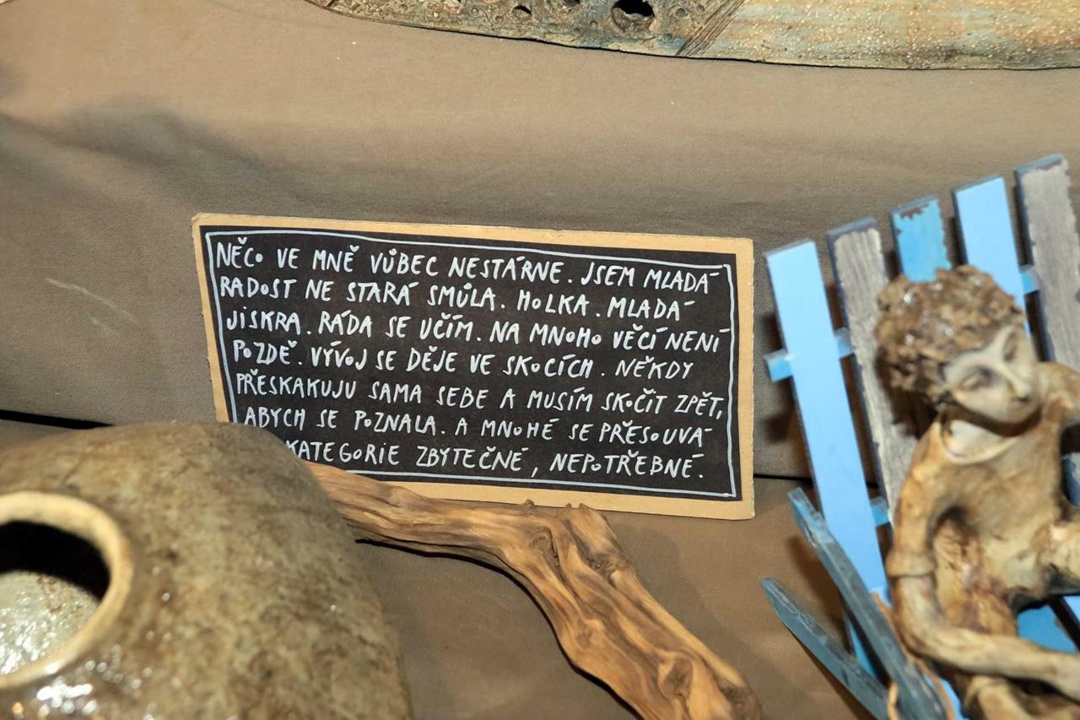 NĚCO VE MNĚ VŮBEC NESTÁRNE. JSEM MLADÁ
RADOST NE STARÁ SMŮLA. HOLKA. MLADÁ
JISKRA. RÁDA SE UČÍM. NA MNOHO VĚCÍ NENÍ
POZDĚ. VÝVOJ SE DĚJE VE SKOCÍCH. NĚKDY
PŘESKAKUJU SAMA SEBE A MUSÍM SKOČIT ZPĚT,
ABYCH SE POZNALA. A MNOHÉ SE PŘESOUVÁ
KATEGORIE ZBYTEČNÉ, NEPOTŘEBNÉ.